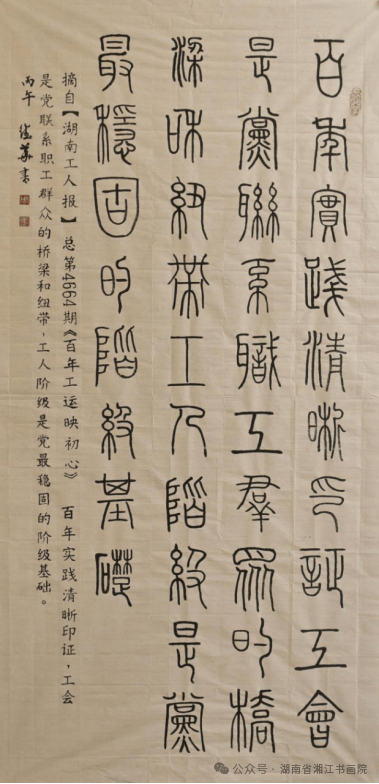 百年實踐清晰印証工會
是黨聯系職工羣眾的橋
梁和紐帶工人階級是黨
最穩固的階級基礎
摘自【湖南工人报】总第4664期《百年工运映初心》 百年实践清晰印证，工会
是党联系职工群众的桥梁和纽带，工人阶级是党最稳固的阶级基础。
丙午 书
公众号 · 湖南省湘江书画院